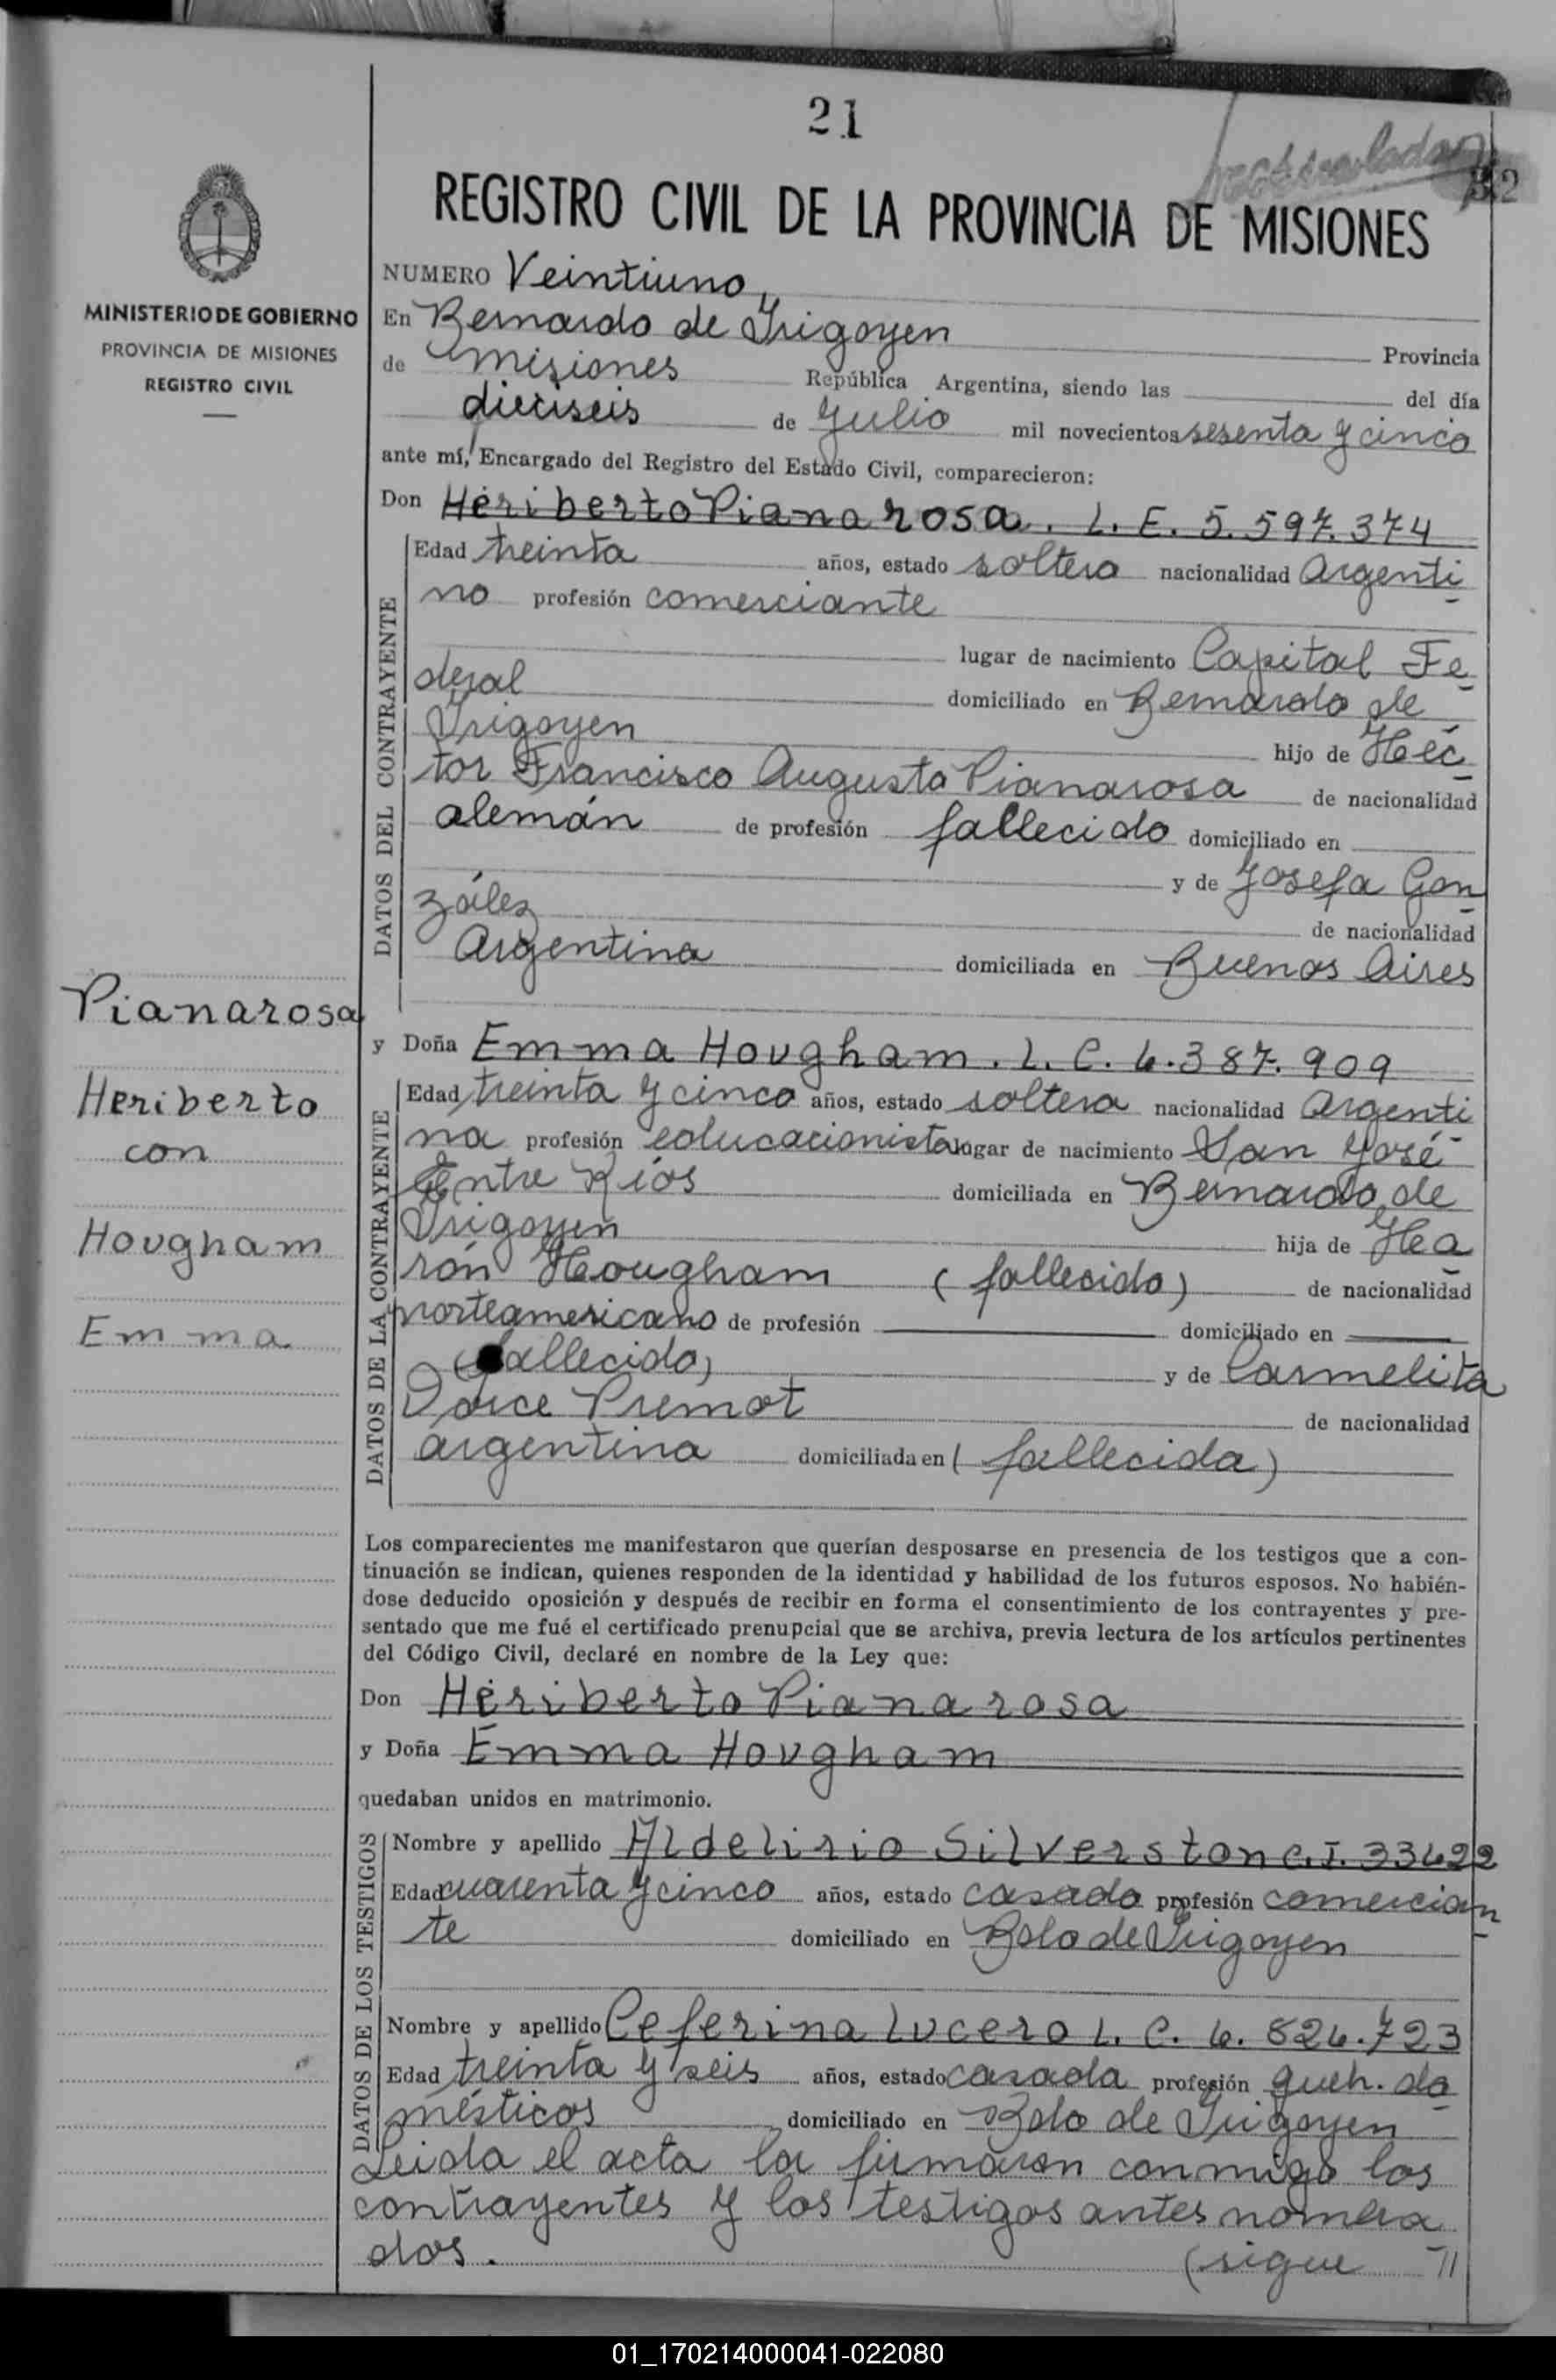 21
32
REGISTRO CIVIL DE LA PROVINCIA DE MISIONES
MINISTERIO DE GOBIERNO
PROVINCIA DE MISIONES
REGISTRO CIVIL
NUMERO Veintiuno
En Bernardo de Irigoyen Provincia
de Misiones República Argentina, siendo las del día
dieciseis de Julio mil novecientos sesenta y cinco
ante mí, Encargado del Registro del Estado Civil, comparecieron:
Don Heriberto Pianarosa. L. E. 5.597.374
DATOS DEL CONTRAYENTE
Edad treinta años, estado soltero nacionalidad Argenti
no profesión comerciante
lugar de nacimiento Capital Fe
deral domiciliado en Bernardo de
Irigoyen hijo de Héc
tor Francisco Augusto Pianarosa de nacionalidad
alemán de profesión fallecido domiciliado en
y de Josefa Gon
zález de nacionalidad
Argentina domiciliada en Buenos Aires
Pianarosa
Heriberto
con
Hougham
Emma
y Doña Emma Hougham. L. C. 6.387.909
DATOS DE LA CONTRAYENTE
Edad treinta y cinco años, estado soltera nacionalidad Argenti
na profesión educacionista lugar de nacimiento San José
Entre Ríos domiciliada en Bernardo de
Irigoyen hija de Hea
rón Hougham (fallecido) de nacionalidad
norteamericano de profesión domiciliado en
(fallecido) y de Carmelita
Dorce Premat de nacionalidad
argentina domiciliada en (fallecida)
Los comparecientes me manifestaron que querían desposarse en presencia de los testigos que a con-
tinuación se indican, quienes responden de la identidad y habilidad de los futuros esposos. No habién-
dose deducido oposición y después de recibir en forma el consentimiento de los contrayentes y pre-
sentado que me fué el certificado prenupcial que se archiva, previa lectura de los artículos pertinentes
del Código Civil, declaré en nombre de la Ley que:
Don Heriberto Pianarosa
y Doña Emma Hougham
quedaban unidos en matrimonio.
DATOS DE LOS TESTIGOS
Nombre y apellido Aldelirio Silverston C.I. 33622
Edad cuarenta y cinco años, estado casado profesión comercian
te domiciliado en Bdo de Irigoyen
Nombre y apellido Ceferina Lucero L. C. 6. 826.723
Edad treinta y seis años, estado casada profesión queh. do
mésticos domiciliado en Bdo de Irigoyen
Leida el acta la firmaron conmigo los
contrayentes y los testigos antes nombra
dos. (sigue //
01_170214000041-022080